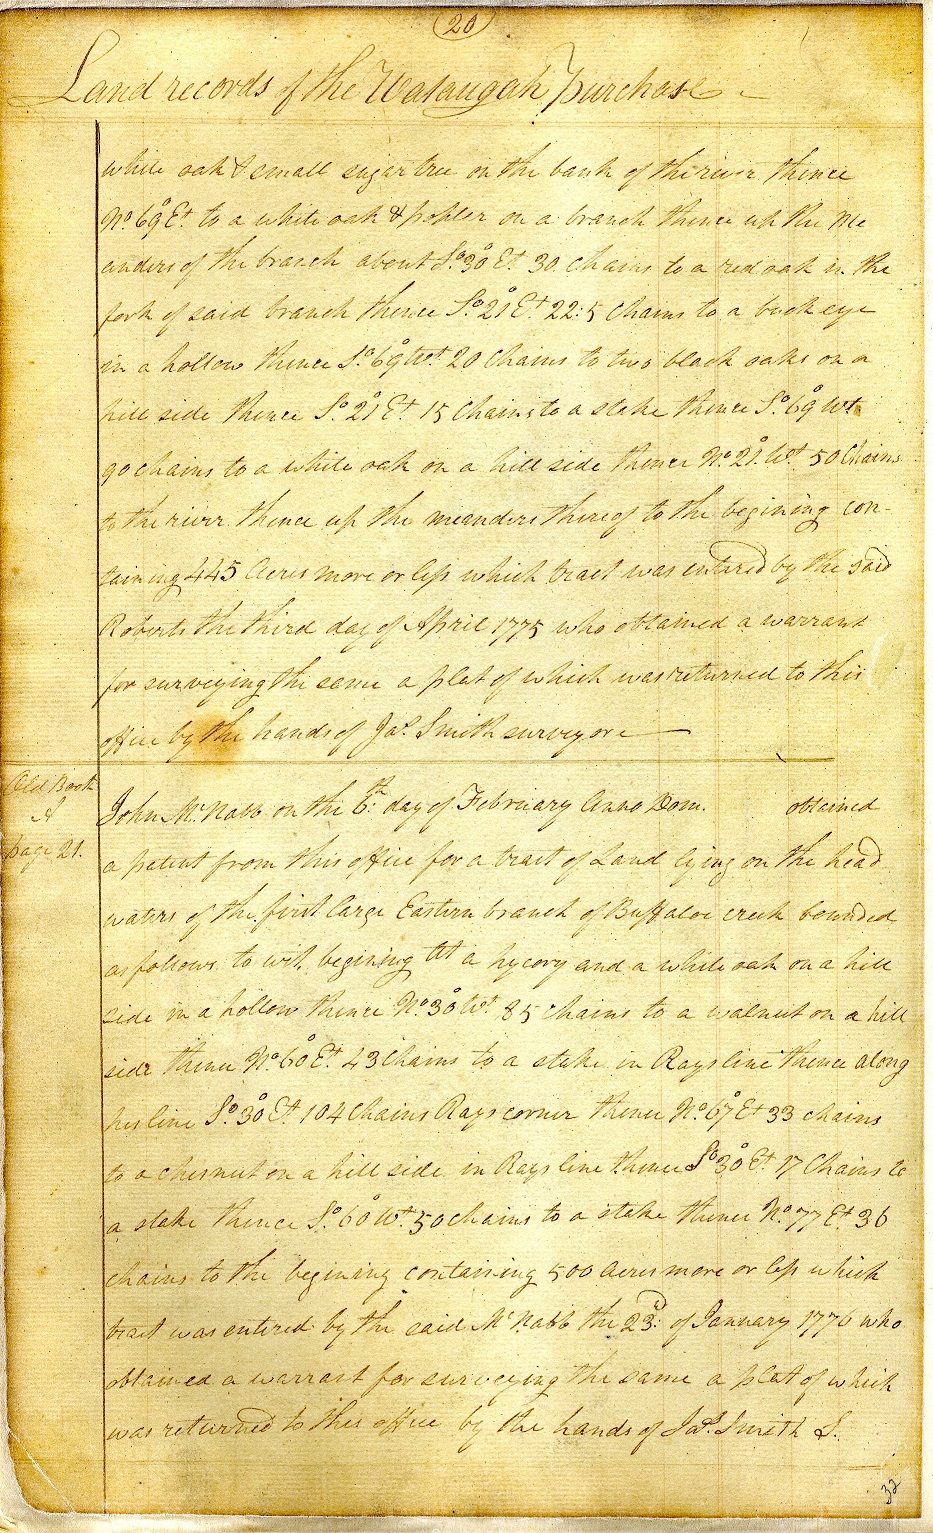 20
Land records of the Wataugah purchase
white oak & small sugar tree on the bank of the river thence
No. 69° Et. to a white oak & popler on a branch thence up the me
anders of the branch about So. 30° Et. 30 chains to a red oak in the
fork of said branch thence So. 21° Et 22:5 chains to a buck eye
in a hollow thence So. 69° Wt. 20 chains to two black oaks on a
hill side thence So. 21° Et. 15 chains to a stake thence So. 69° Wt
90 chains to a white oak on a hill side thence No. 21° Wt 50 Chains
to the river thence up the meanders thereof to the begining con-
taining 445 Acres more or less which tract was entered by the said
Roberts the third day of April 1775 who obtained a warrant
for surveying the same a plat of which was returned to this
office by the hands of Jas. Smith surveyore
Old Book
A
page 21.
John Mc.Nabb on the 6th. day of February Anno Dom. obtained
a patent from this office for a tract of Land lying on the head
waters of the first large Eastern branch of Buffaloe creek bounded
as follows to wit, begining At a hycory and a white oak on a hill
side in a hollow thence No. 30° Wt. 85 chains to a walnut on a hill
side thence No. 60° Et. 43 chains to a stake in Rays line thence along
his line So. 30° Et. 104 chains Rays corner thence No. 67° Et 33 chains
to a chesnut on a hill side in Rays line thence So. 30° Et. 17 Chains to
a stake thence So. 60° Wt. 50 chains to a stake thence No. 77 Et. 36
chains to the begining containing 500 acres more or less which
tract was entered by the said Mc.Nabb the 23d. of January 1776 who
obtained a warrant for surveying the same a plat of which
was returned to this office by the hands of Jas. Smith S.
32